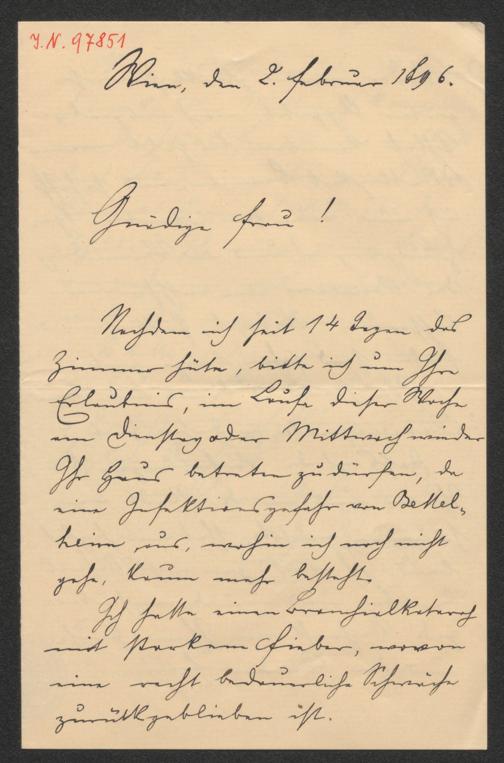 J.N. 97851
Wien, den 2. Februar 1896.
Gnädige Frau!
Nachdem ich seit 14 Tagen das
Zimmer hüte, bitte ich um Ihre
Erlaubnis, im Laufe dieser Woche
am Dienstag oder Mittwoch wieder
Ihr Haus betreten zu dürfen, da
eine Infektionsgefahr von Bettel-
heim aus, wohin ich noch nicht
gehe, kaum mehr besteht.
Ich hatte einen Bronchialkatarrh
mit starkem Fieber, wovon
eine recht bedauerliche Schwäche
zurückgeblieben ist.